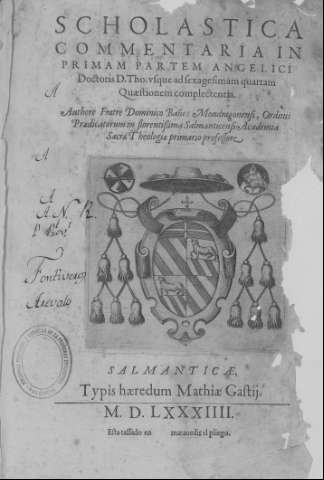 SCHOLASTICA
COMMENTARIA IN
PRIMAM PARTEM ANGELICI
Doctoris D. Tho. vsque ad sexagesimam quartam
Quæstionem complectentia.
Authore Fratre Dominico Bañes Mondragonensi, Ordinis
Prædicatorum in florentissima Salmanticensi Academia
Sacræ Theologiæ primario professore.
A
A
A
A. N. R.
Fontiveros
Arevalo
SALMANTICÆ,
Typis hæredum Mathiæ Gastij.
M. D. LXXXIIII.
Esta tassado en marauedis el pliego.